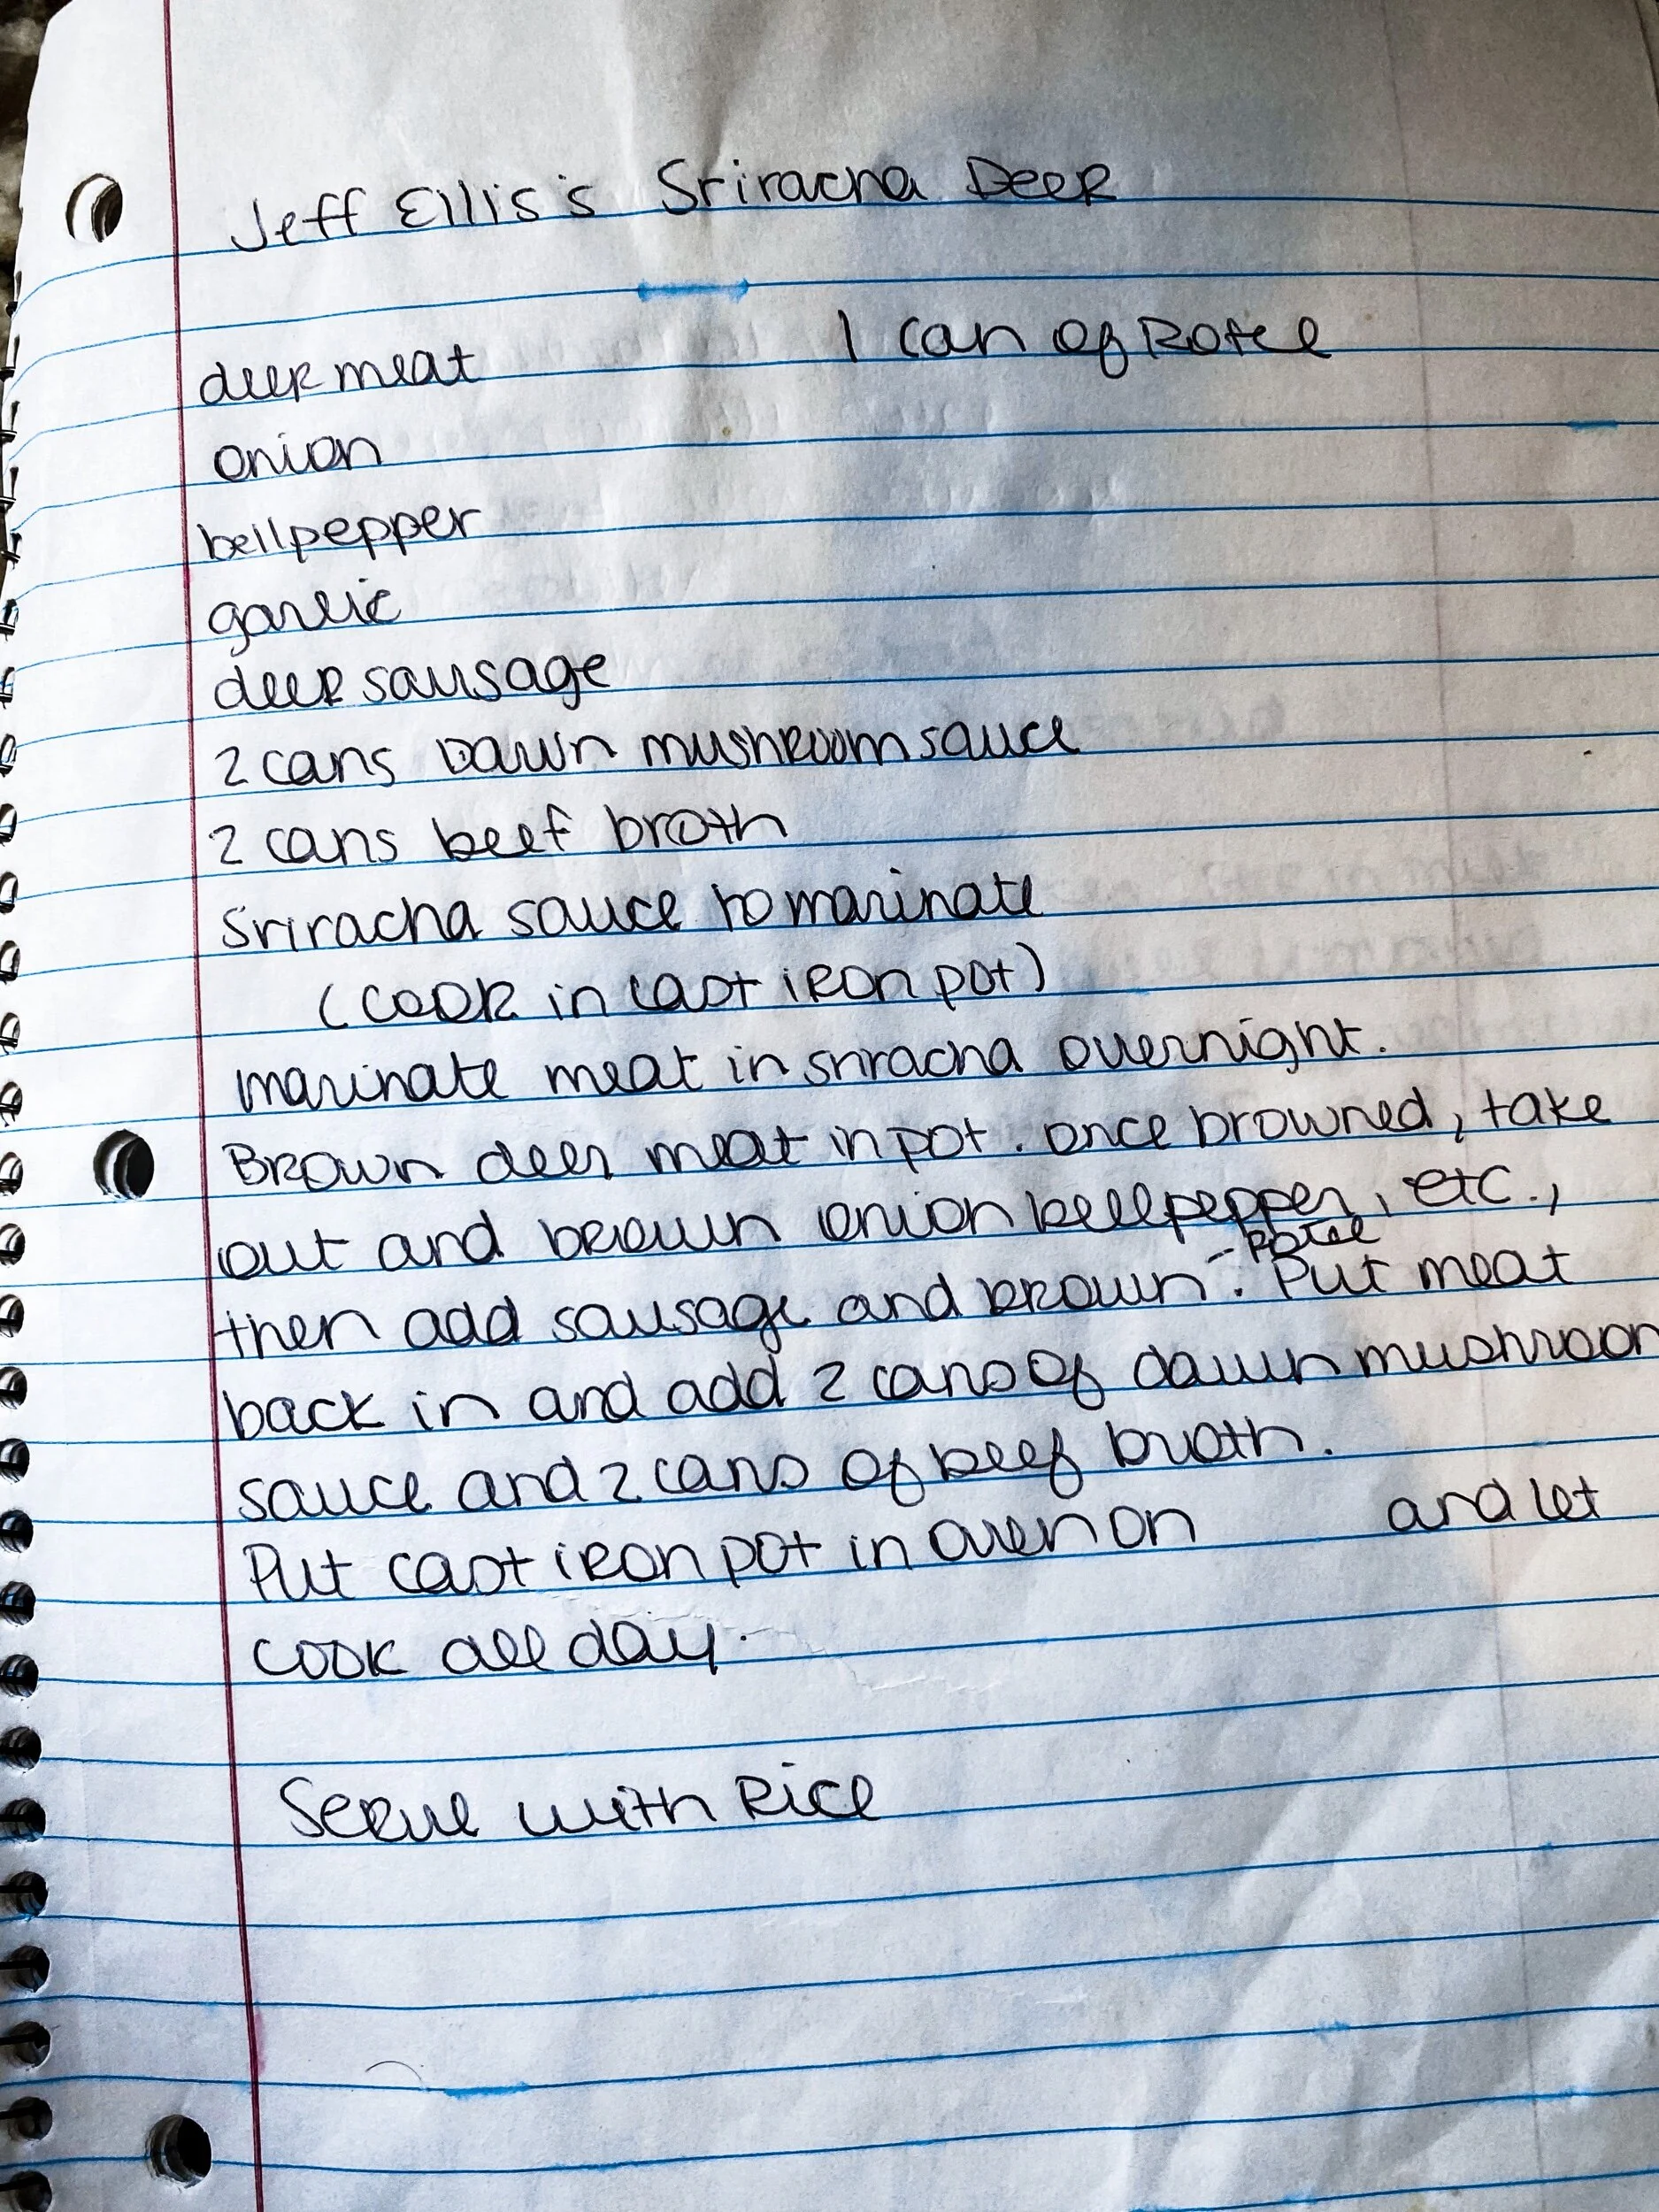 Jeff Ellis's Sriracha Deer
1 can of Rotel
deer meat
onion
bellpepper
garlic
deer sausage
2 cans Dawn mushroom sauce
2 cans beef broth
Sriracha sauce to marinate
(cook in cast iron pot)
marinate meat in sriracha overnight.
Brown deer meat in pot. once browned, take
out and brown onion bellpepper, etc.,
- Rotel
then add sausage and brown. Put meat
back in and add 2 cans of dawn mushroom
sauce and 2 cans of beef broth.
Put cast iron pot in oven on and let
cook all day.
Serve with Rice